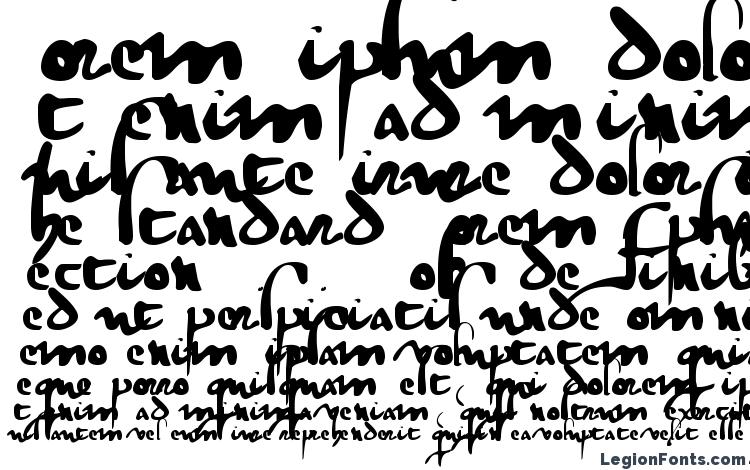 orem ipsum dolo
t enim ad minim
nil ante irure dolor
he standard orem ipsu
ection of de finib
ed ut perspiciatis unde omn
emo enim ipsam voluptatem qui
eque porro quisquam est qui dolorem ip
t enim ad minima veniam quis nostrum exercit
nil autem vel eum iure reprehenderit qui in ea voluptate velit esse
LegionFonts.com